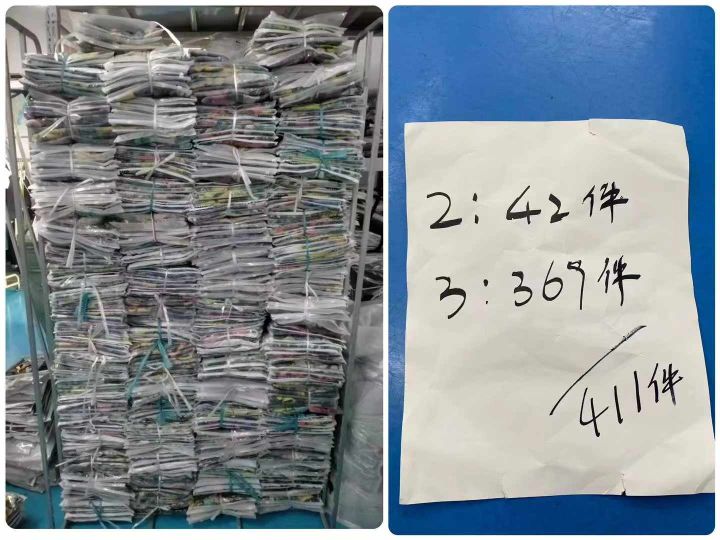 2: 42件
3: 369件
411件